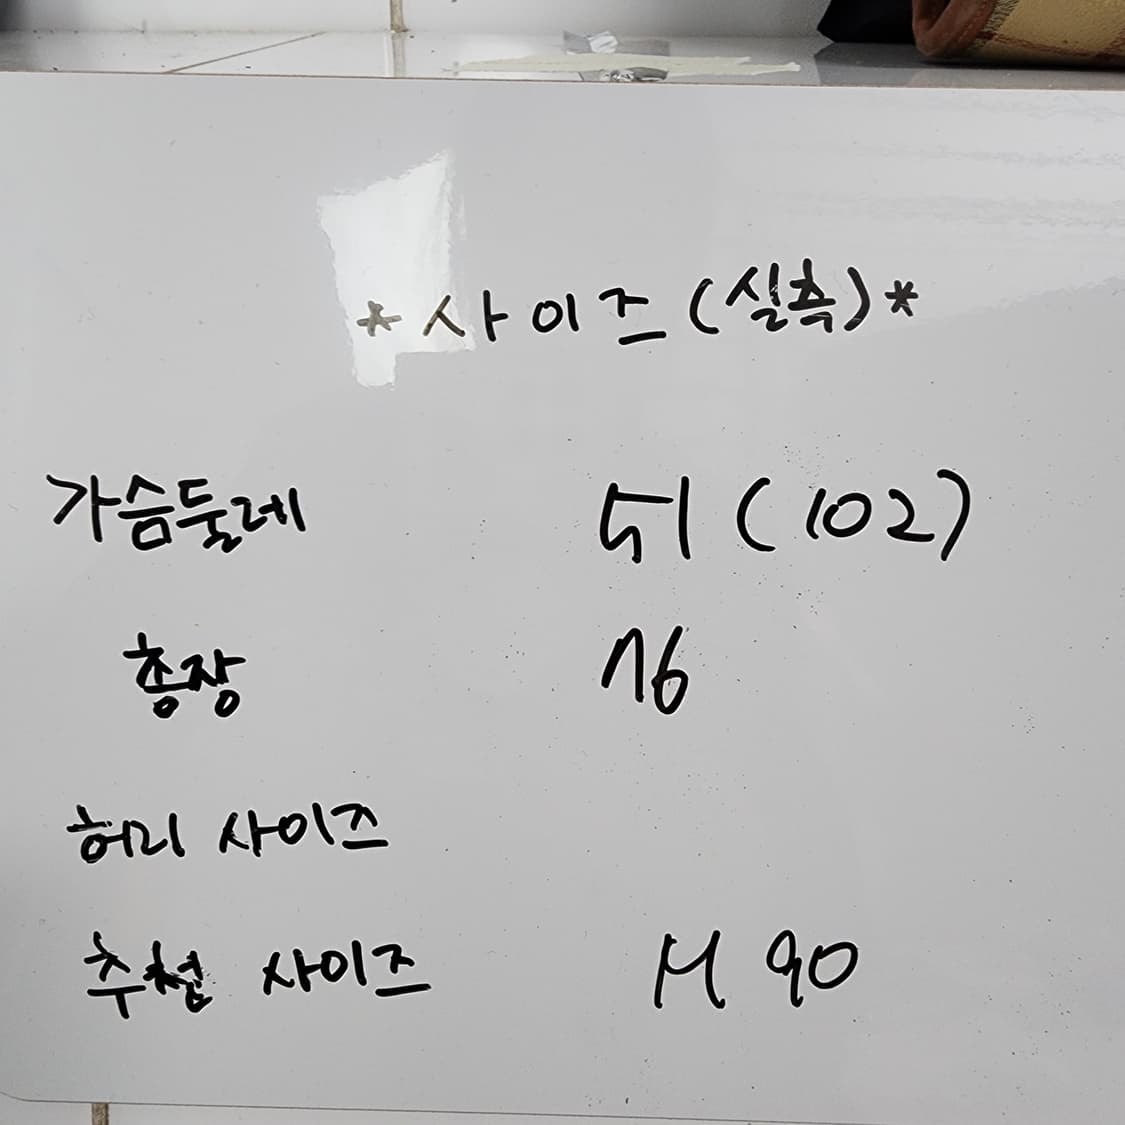 *사이즈(실측)*
가슴둘레 51(102)
총장 76
허리 사이즈
추천 사이즈 M 90